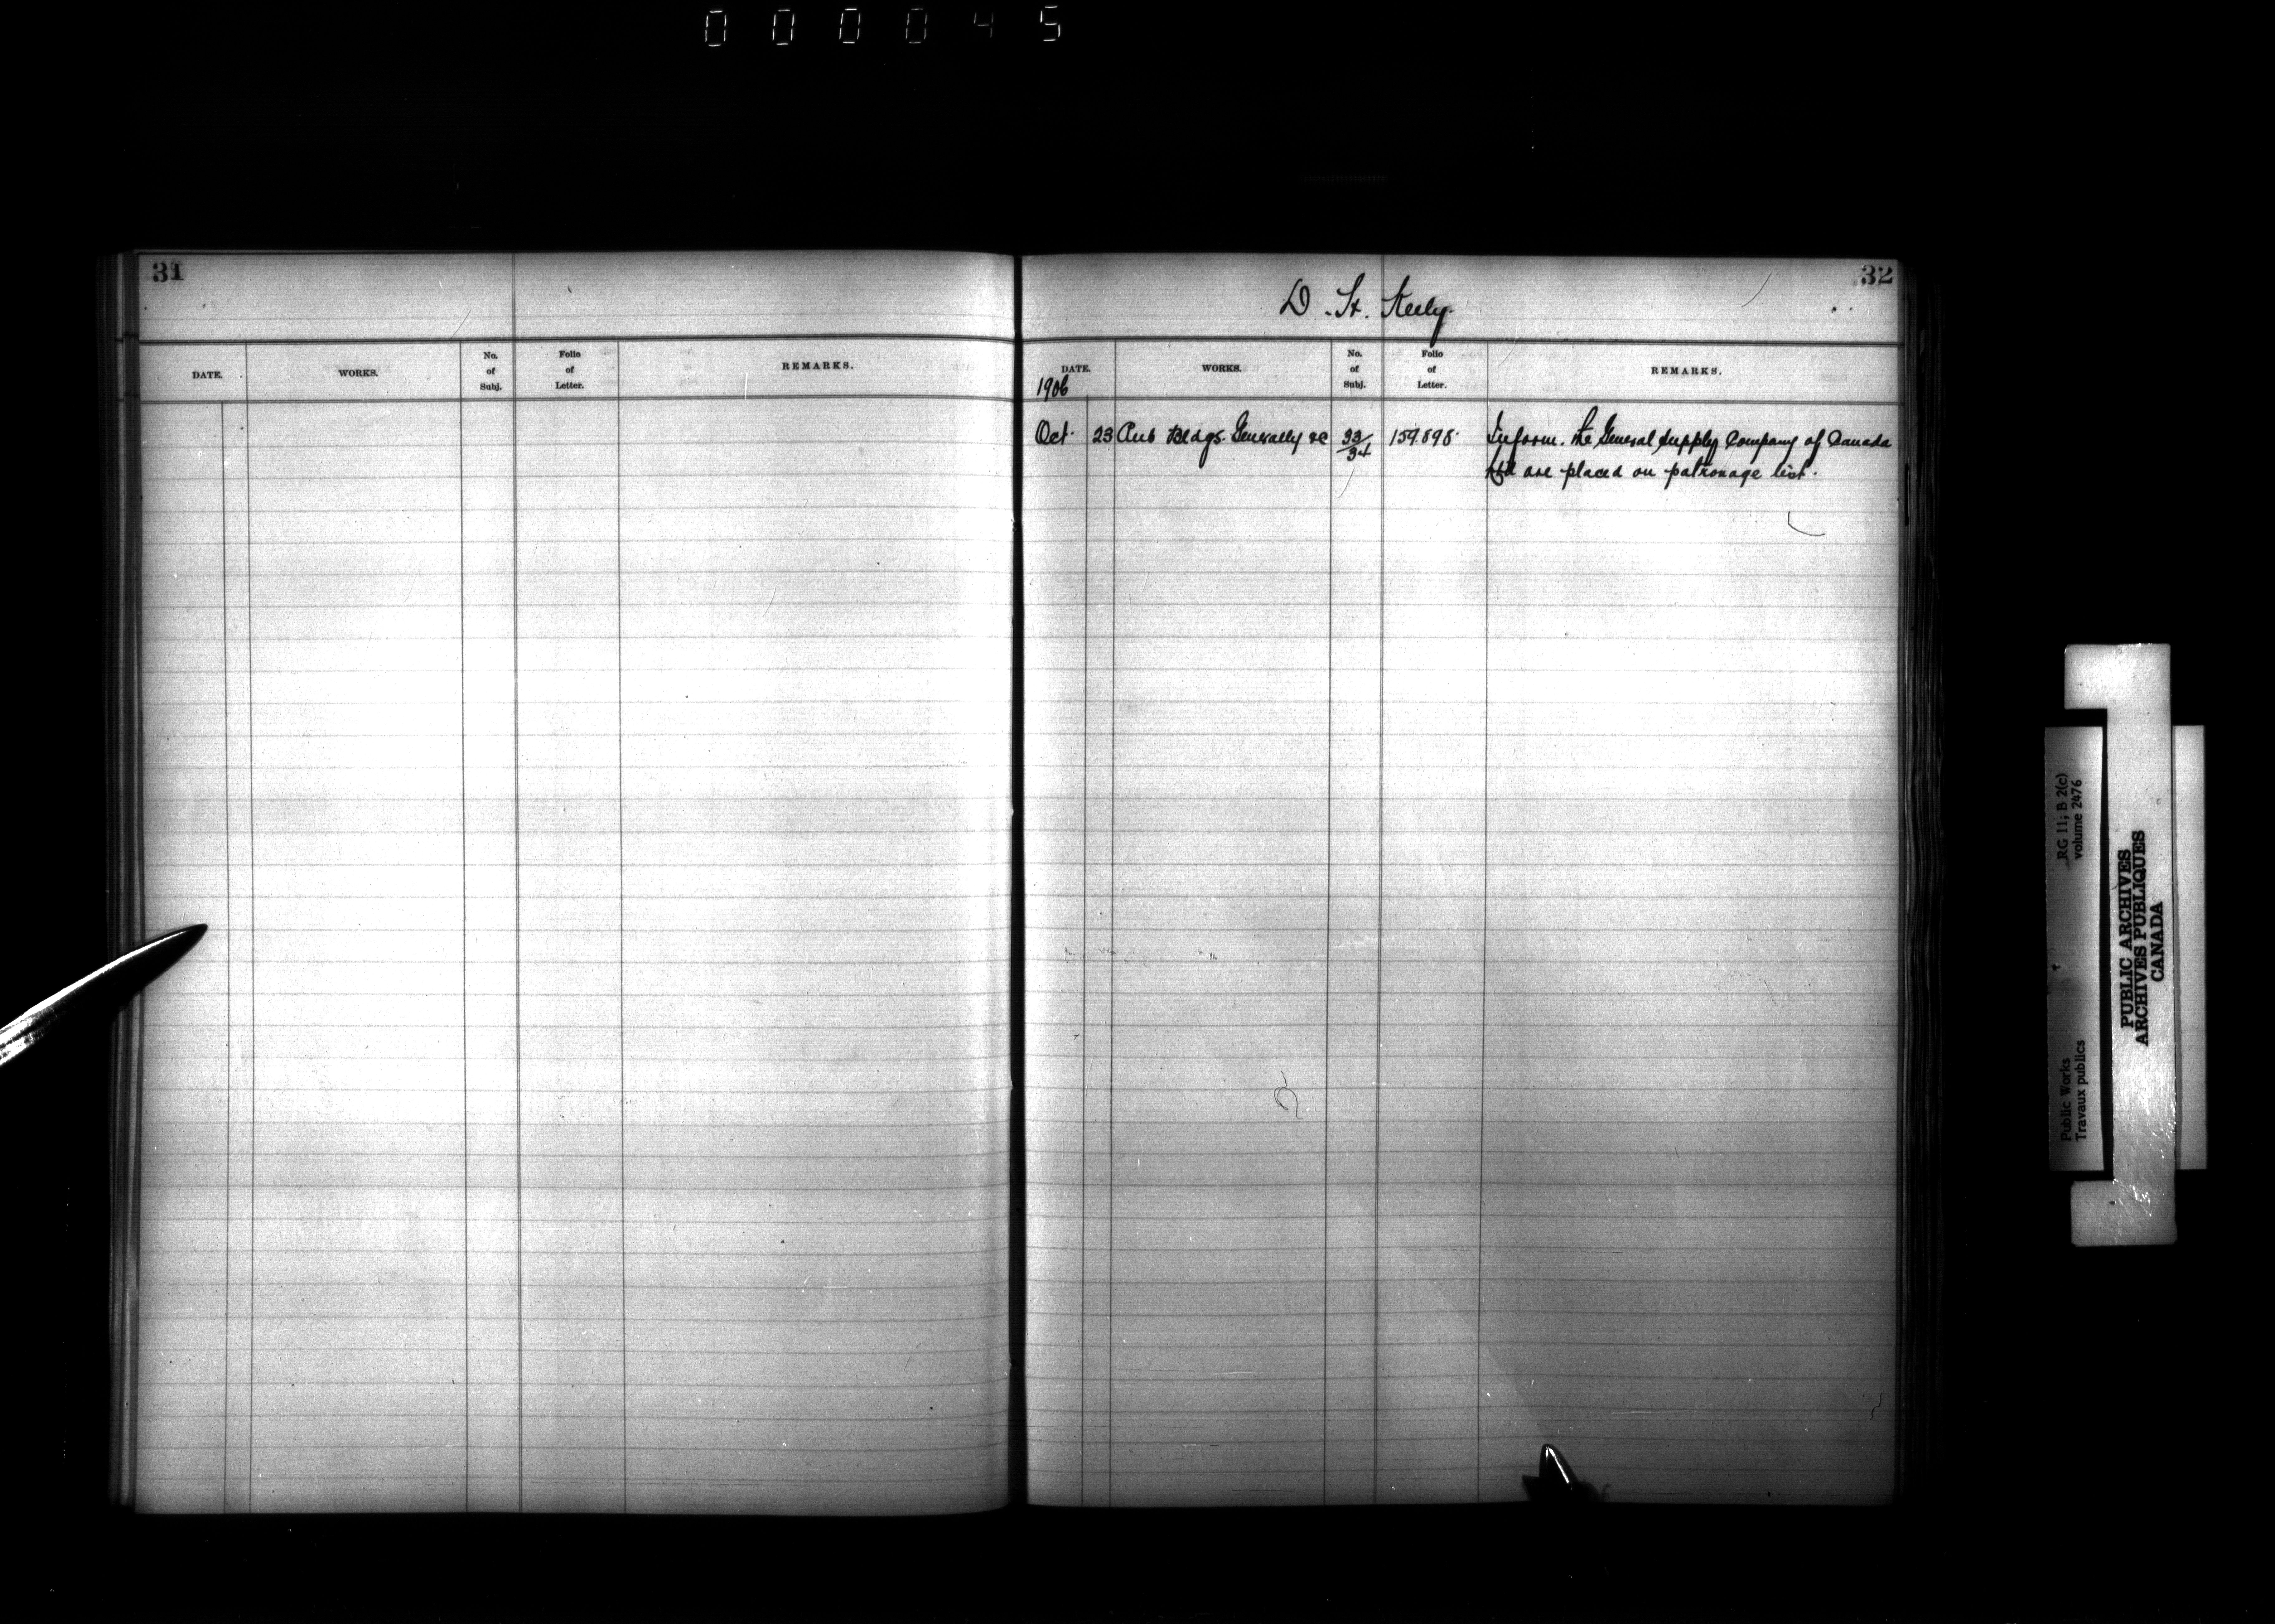 000045
31
32
D. H. Keely.
DATE. WORKS. No. of Subj. Folio of Letter. REMARKS.
DATE. WORKS. No. of Subj. Folio of Letter. REMARKS.
1906
Oct. 23 Pub Bldgs. Generally &c 33/34 159.898. Inform. the General Supply Company of Canada
Ltd are placed on patronage list.
RG 11; B 2(c)
volume 2476
Public Works
Travaux publics
PUBLIC ARCHIVES
ARCHIVES PUBLIQUES
CANADA